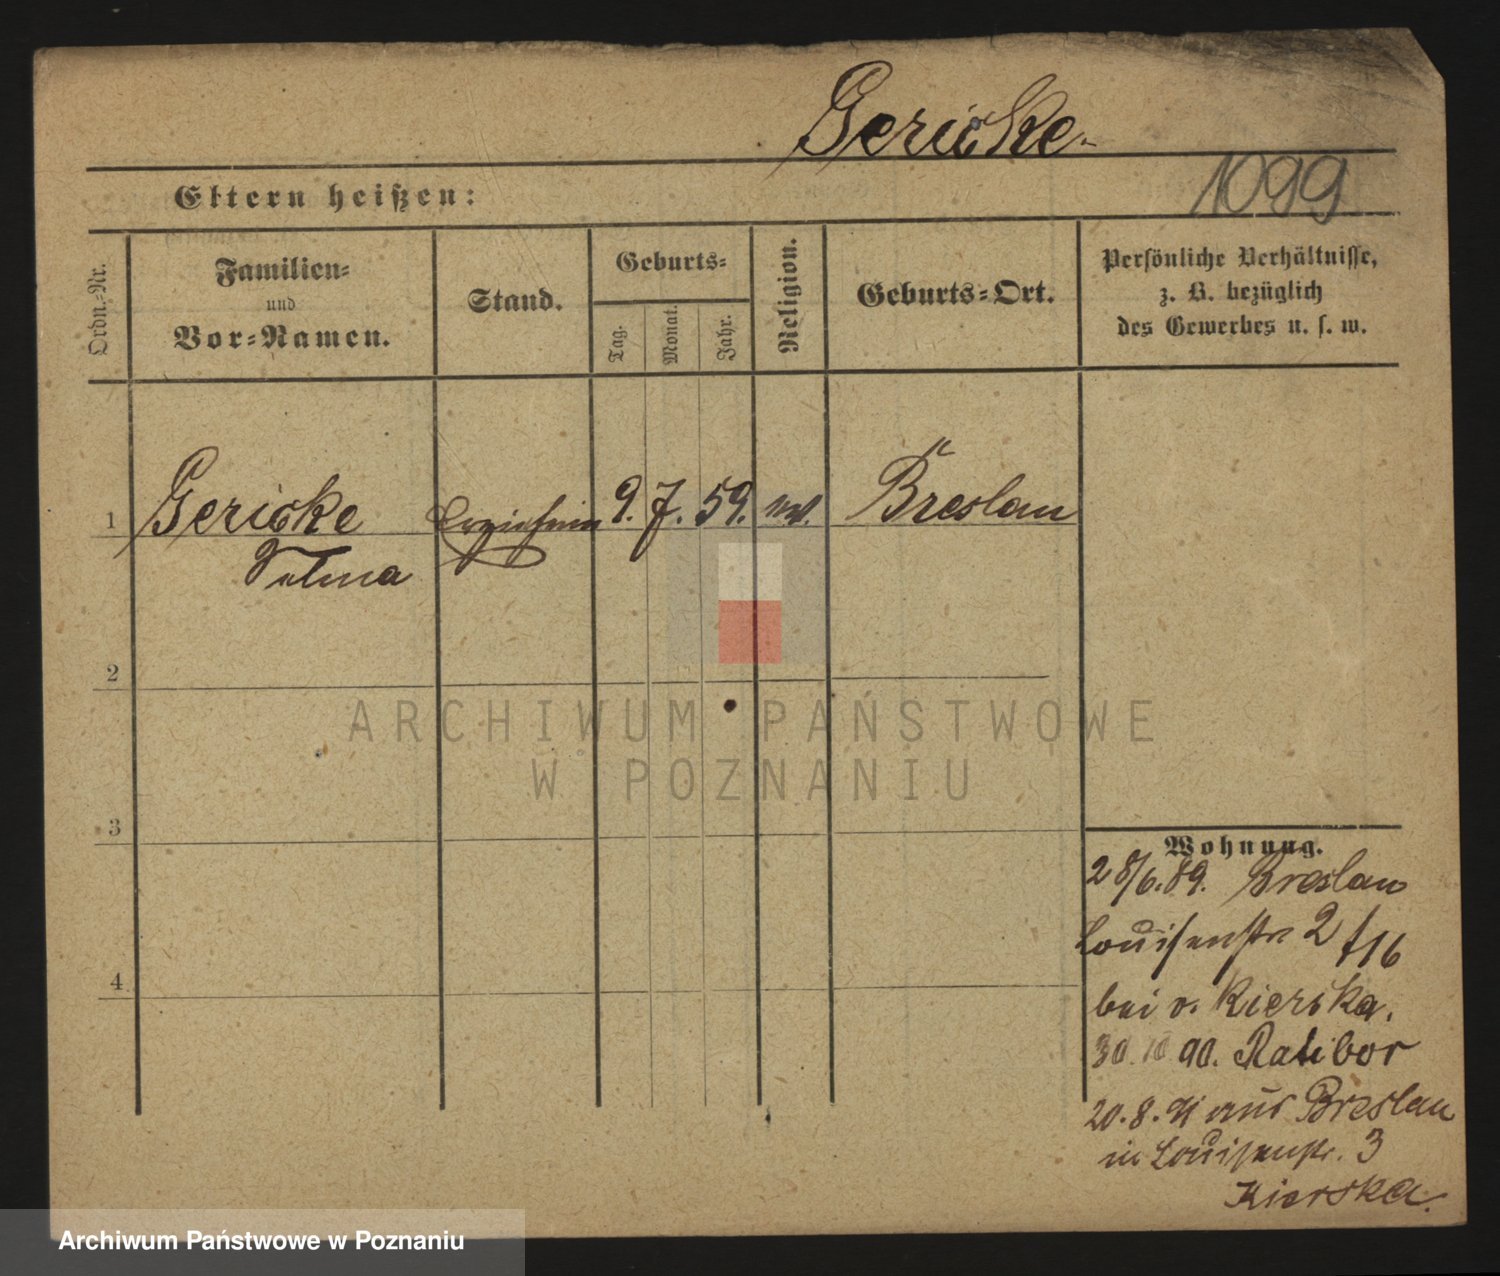 Gericke
1099
Eltern heißen:
Ordn.-Nr.
Familien-
und
Vor-Namen.
Stand.
Geburts-
Tag.
Monat.
Jahr.
Religion.
Geburts-Ort.
Persönliche Verhältnisse,
z. B. bezüglich
des Gewerbes u. s. w.
1 Gericke Erzieherin 9. 7. 59. ev. Breslau
Selma
2
3
4
ARCHIWUM PAŃSTWOWE
W POZNANIU
Wohnung.
28/6.89. Breslau
Louisenstr 2 /16
bei v. Kierska.
30.10 90. Ratibor
20.8.91 aus Breslau
in Louisenstr. 3
Kierska.
Archiwum Państwowe w Poznaniu